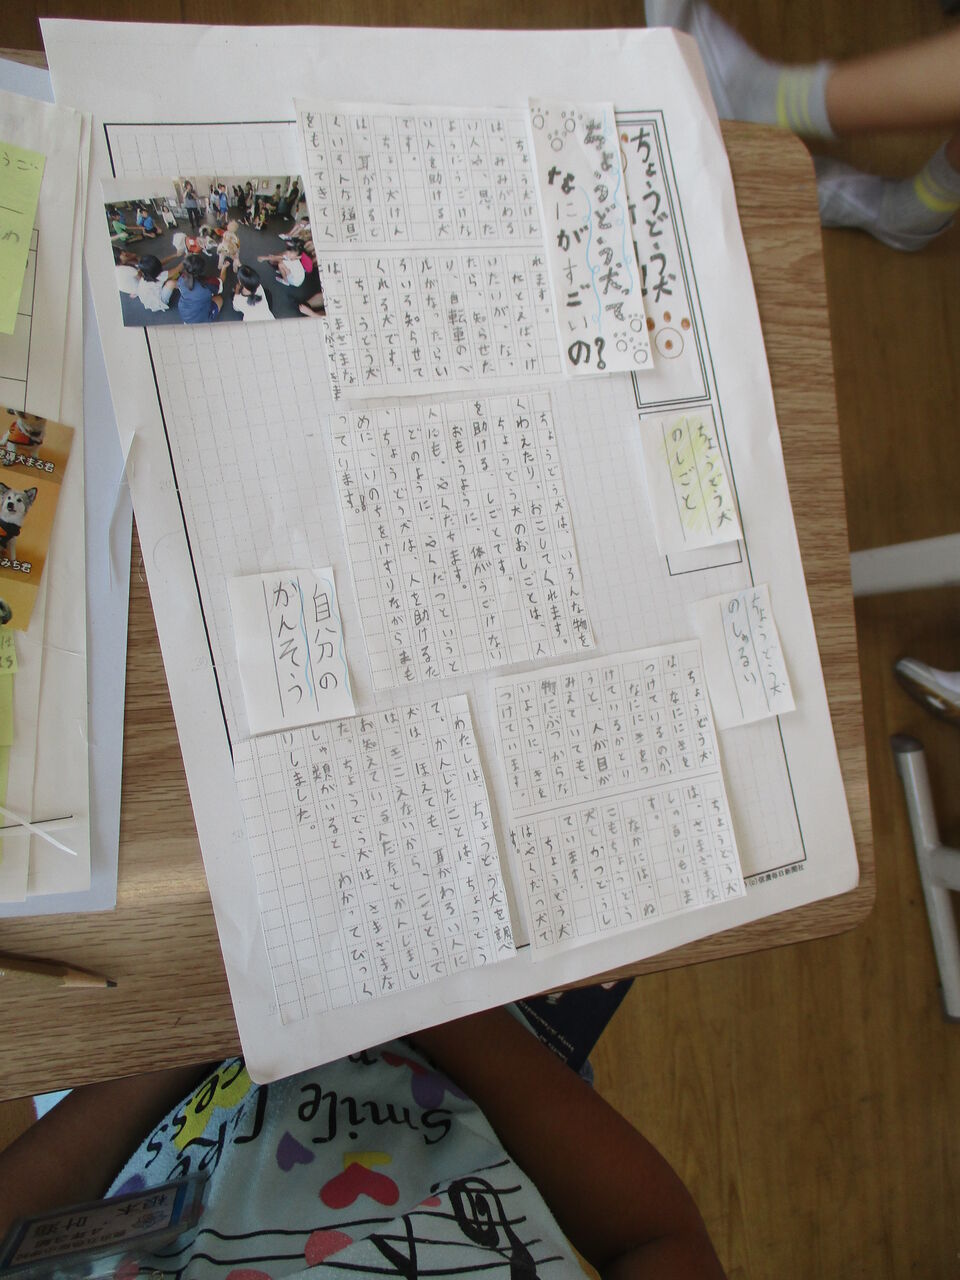 ちょうどう犬
ちょうどう犬って
なにがすごいの?
ちょうどう犬は
は、みみがわる
い人や、思った
ようにうごけな
い人を助ける犬
です。
ちょうどう犬は
は、耳がするど
くいろんな道具
をもってきてく
れます。
たとえば、け
いたいが、な
たら、知らせた
り、自転車のベ
ルがなったらい
ろいろ知らせて
くれる犬です。
ちょうどう犬
は、さまざまな
ちょうどう犬
のしごと
ちょうどう犬は、いろんな物を
くわえたり、おこしてくれます。
ちょうどう犬のおしごとは、人
を助ける、しごとです。
おもうように、体がうごけない
人にも、やくだちます。
どのように、やくだつというと
、ちょうどう犬は、人を助けるた
めに、いのちをけずりながらまも
っています。
ちょうどう犬
のしゅるい
ちょうどう犬
は、なににきを
つけているのか、
なににきをつ
けているかとい
うと、人が目が
みえていても、
物にぶつからな
いように、きを
つけています。
ちょうどう犬
は、さまざまな
しゅるいもいま
す。
なかには、ね
こもちょうどう
犬とかつどうし
ています。
ちょうどう犬
はやくだつ犬で
す。
自分の
かんそう
わたしは、ちょうどう犬を調べ
て、かんじたことは、ちょうどう
犬は、ほえても、耳がわるい人に
は、きこえないから、ことどうで
お知えているんだなとかんじまし
た。ちょうどう犬は、さまざまな
しゅ類がいると、わかってびっく
りしました。
(c)信濃毎日新聞社
まる君
みち君
Smile